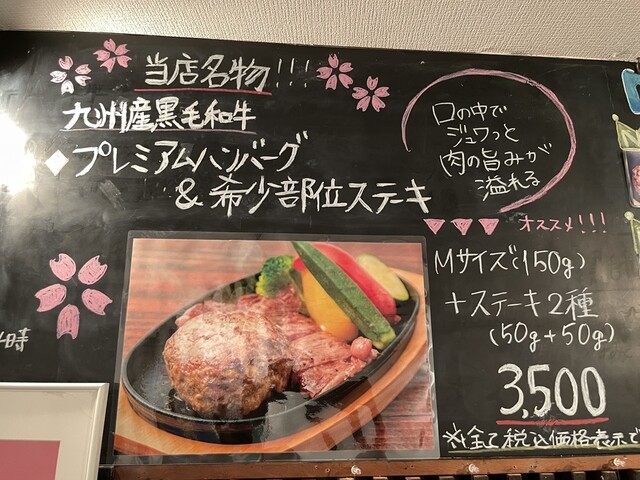 当店名物!!!
九州産黒毛和牛
◆プレミアムハンバーグ
&希少部位ステーキ
口の中で
ジュワっと
肉の旨みが
溢れる
オススメ!!!
Mサイズ(150g)
+ステーキ2種
(50g+50g)
3,500
※全て税込価格表示で
時